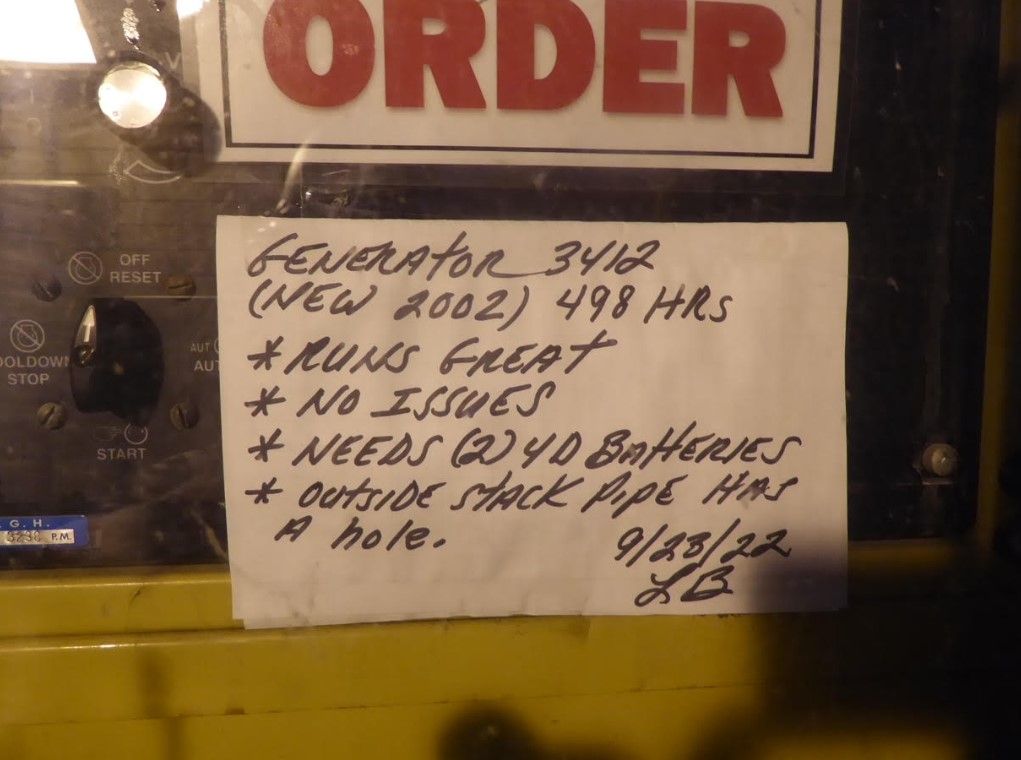 ORDER
GENERATOR 3412
(NEW 2002) 498 HRS
* RUNS GREAT
* NO ISSUES
* NEEDS (2) 4D BATTERIES
* OUTSIDE STACK PIPE HAS
A hole.
9/28/22
LB
OFF
RESET
OOLDOWN
STOP
AUT
AUT
START
G. H.
P.M.